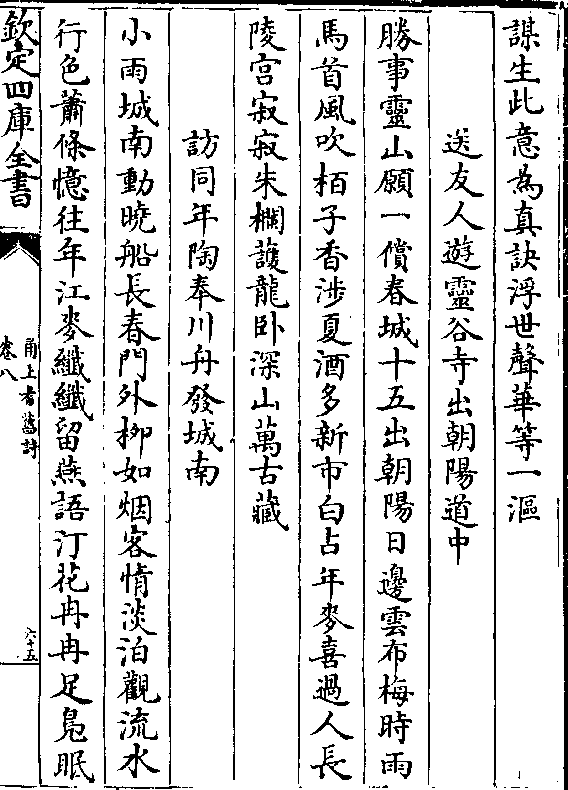 謀生此意為真訣浮世聲華等一漚
送友人遊靈谷寺出朝陽道中
勝事靈山願一償春城十五出朝陽日邊雲布梅時雨
馬首風吹栢子香涉夏酒多新市白占年麥喜過人長
陵宫寂寂朱欄䕶龍卧深山萬古藏
訪同年陶奉川舟發城南
小雨城南動曉船長春門外栁如烟客情淡泊觀流水
行色蕭條憶往年江麥纖纖留燕語汀花冉冉足鳧眠
欽定四庫全書
甬上耆舊詩
卷八
六十五